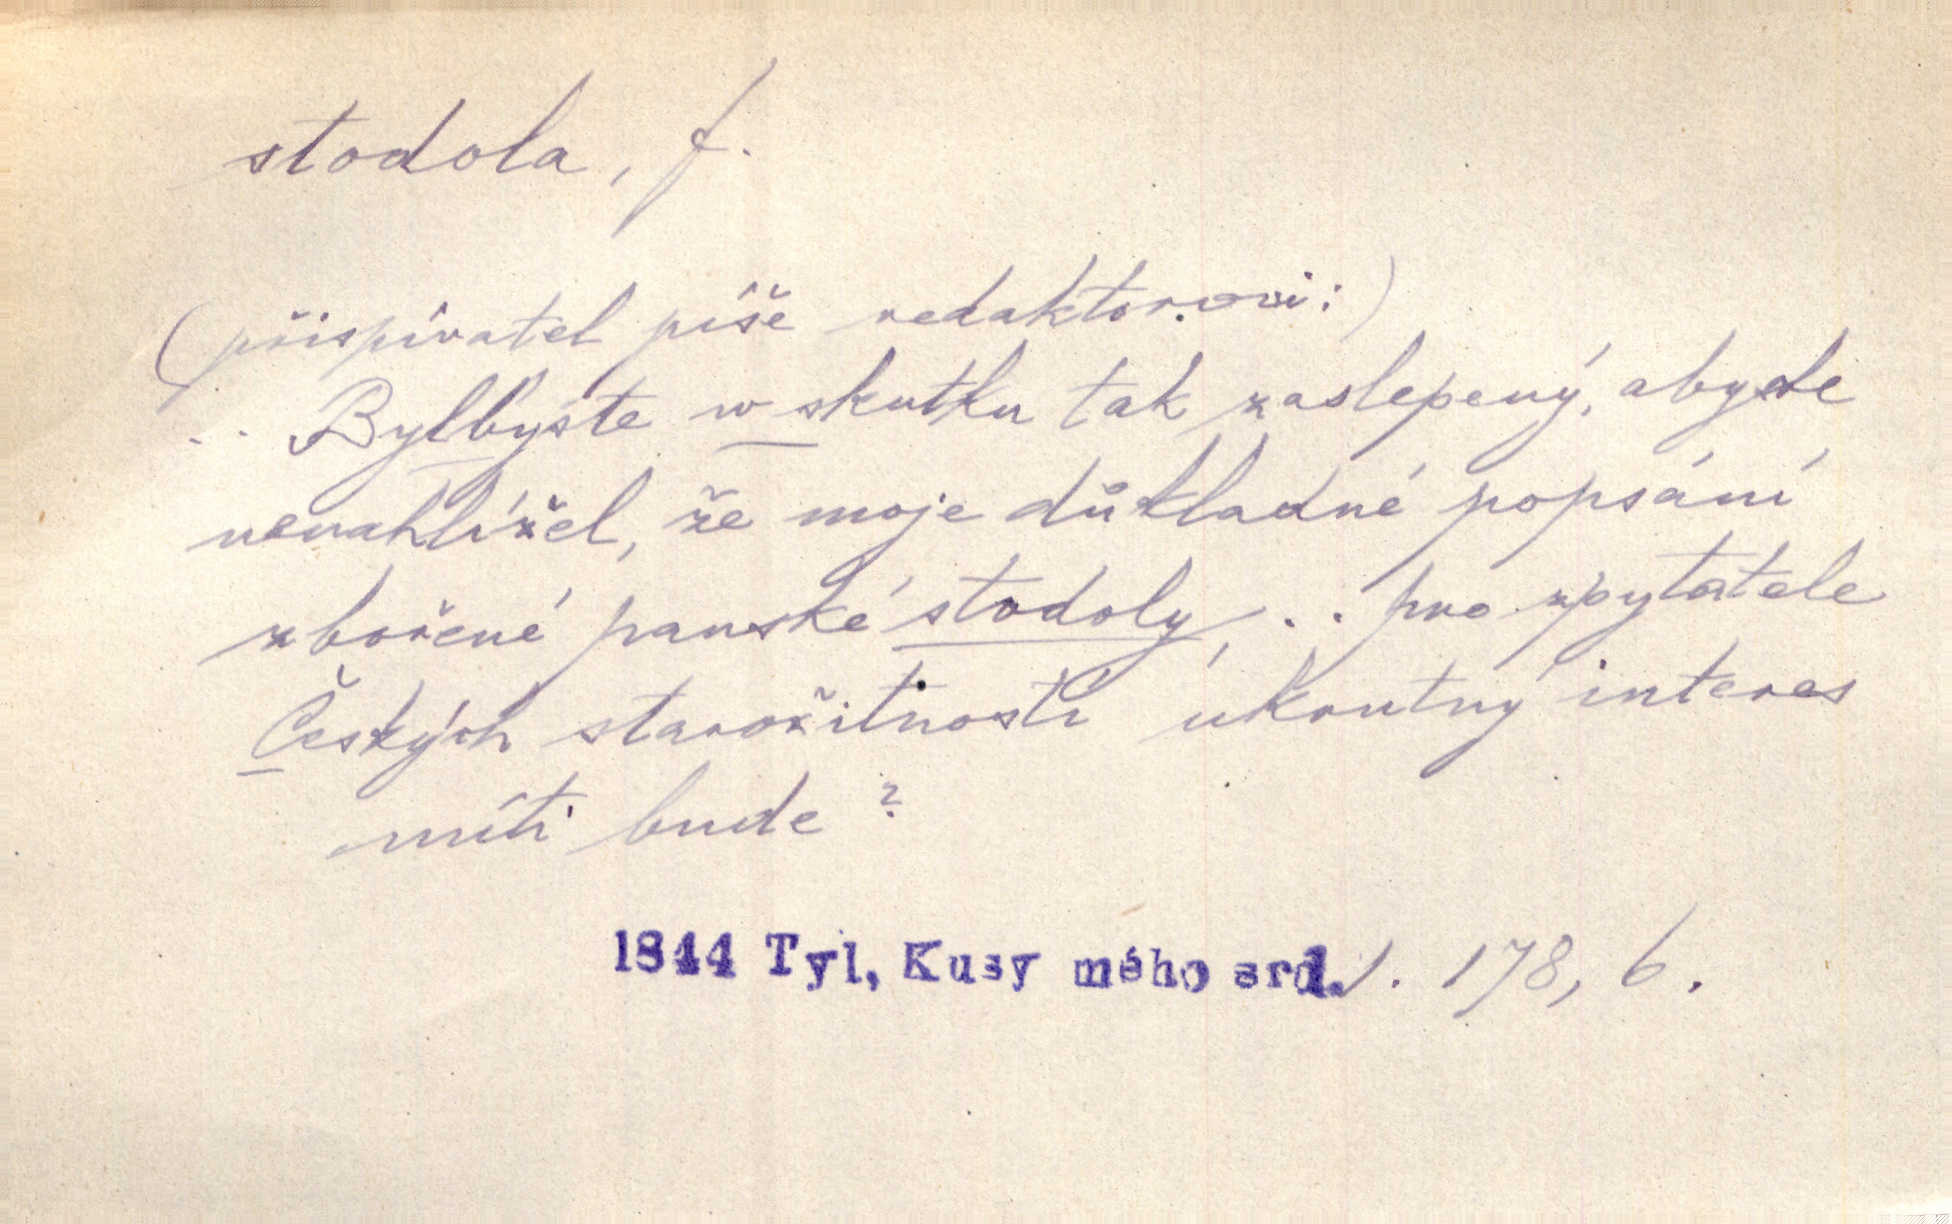 stodola, f.
(přispívatel píše redaktorovi:)
.. Bylbyste w skutku tak zaslepený, abyste
nenahlížel, že moje důkladné popsání
zbořené panské stodoly, ... pro zpytatele
Českých starožitností ukrutný interes
míti bude?
1844 Tyl, Kusy mého srd. 1. 178, 6.